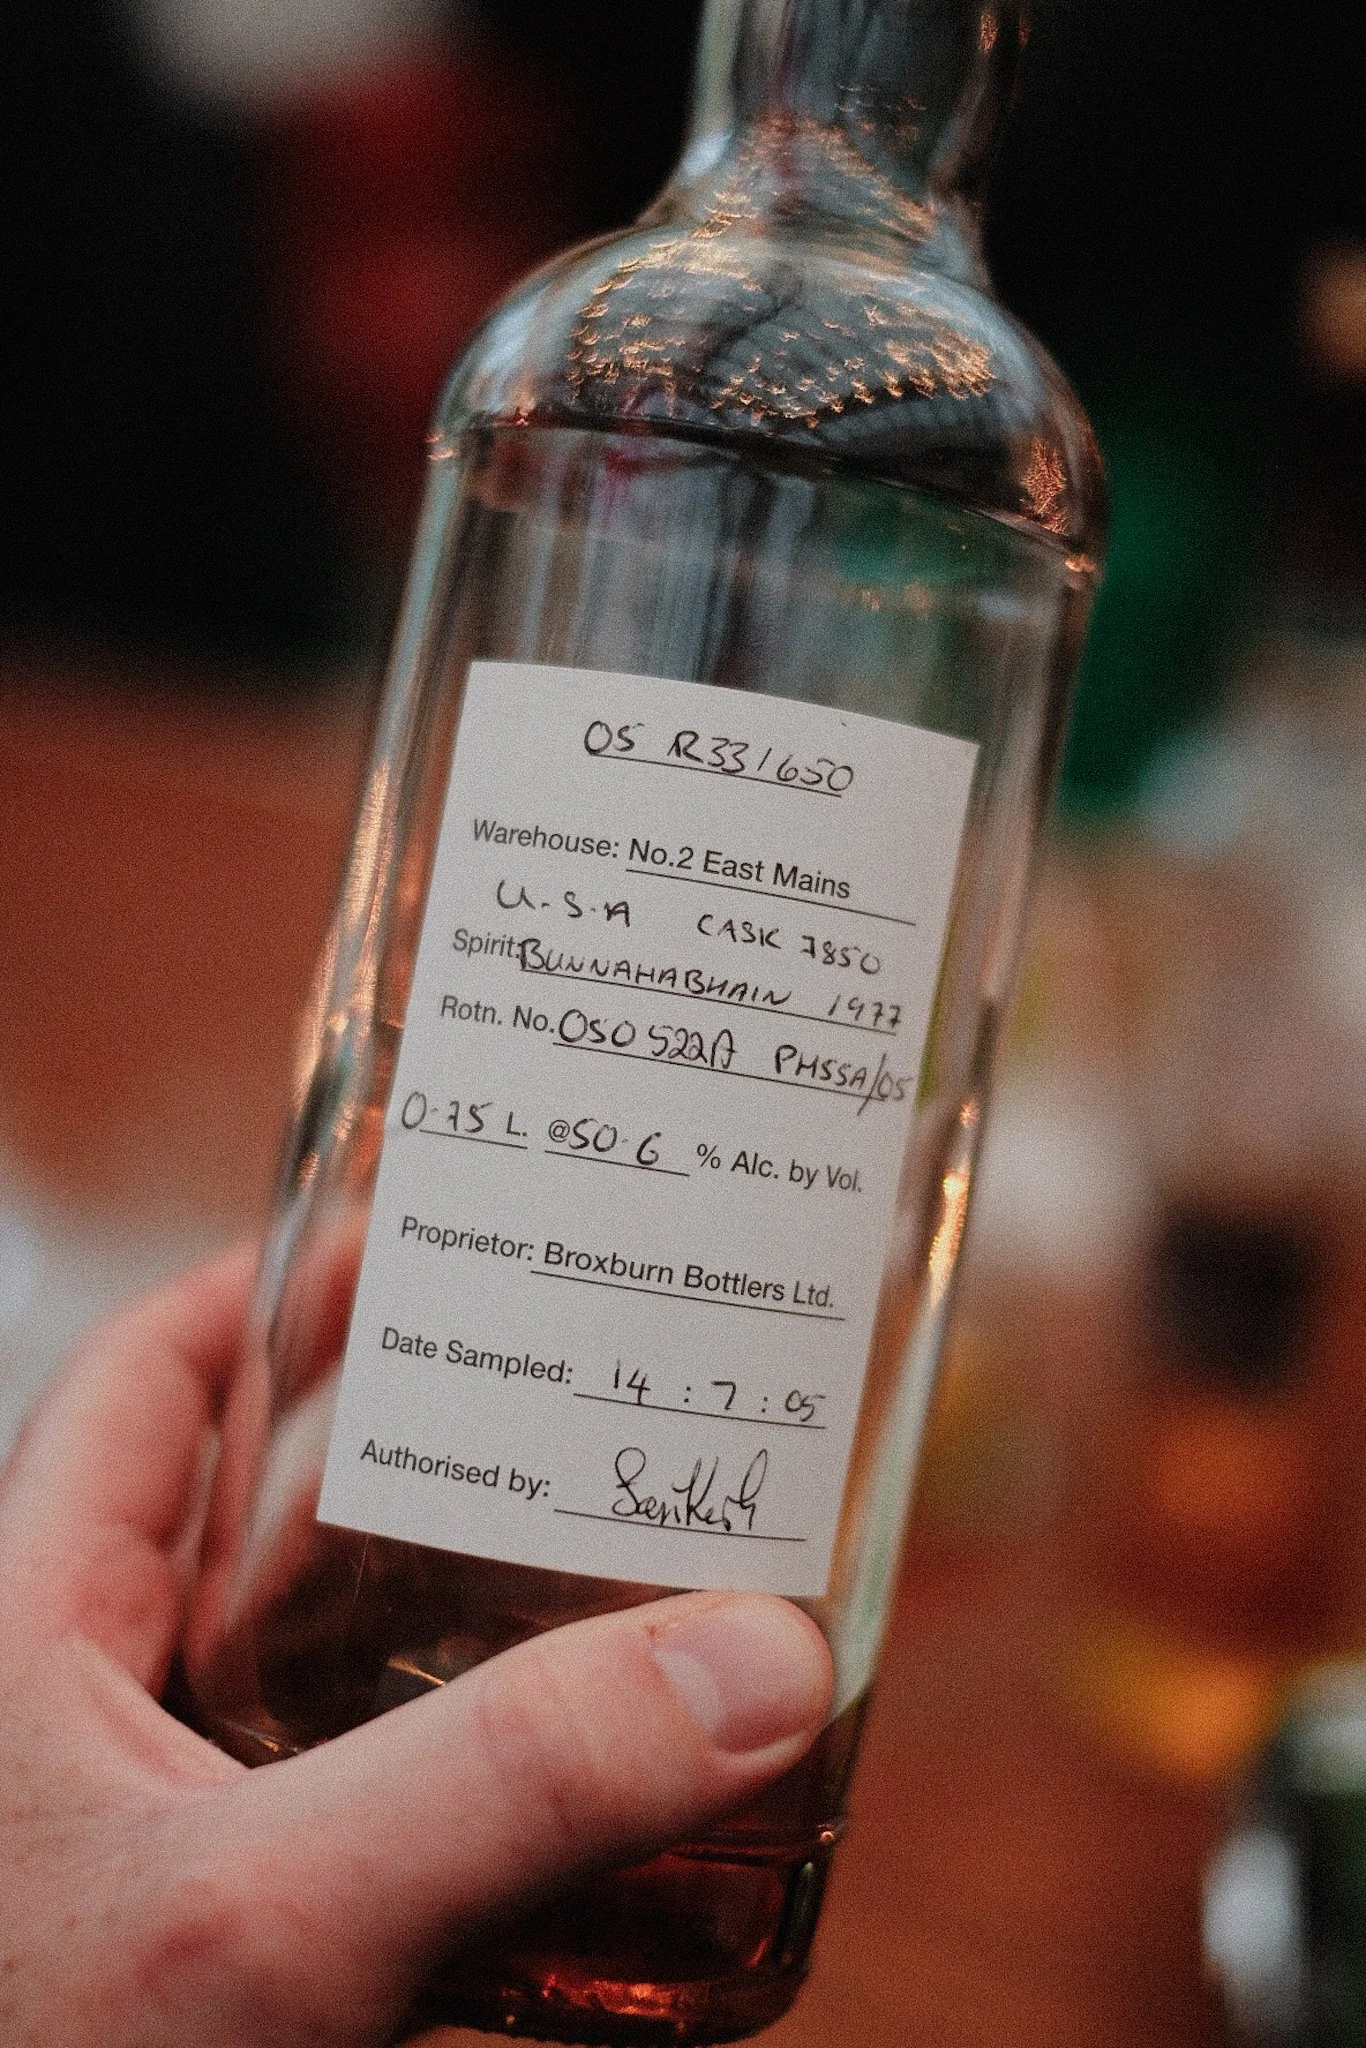 05 R33/650
Warehouse: No.2 East Mains
U.S.A CASK 7850
Spirit: BUNNAHABHAIN 1977
Rotn. No. 050522A PHSSA/05
0.75 L. @50.6 % Alc. by Vol.
Proprietor: Broxburn Bottlers Ltd.
Date Sampled: 14 : 7 : 05
Authorised by: